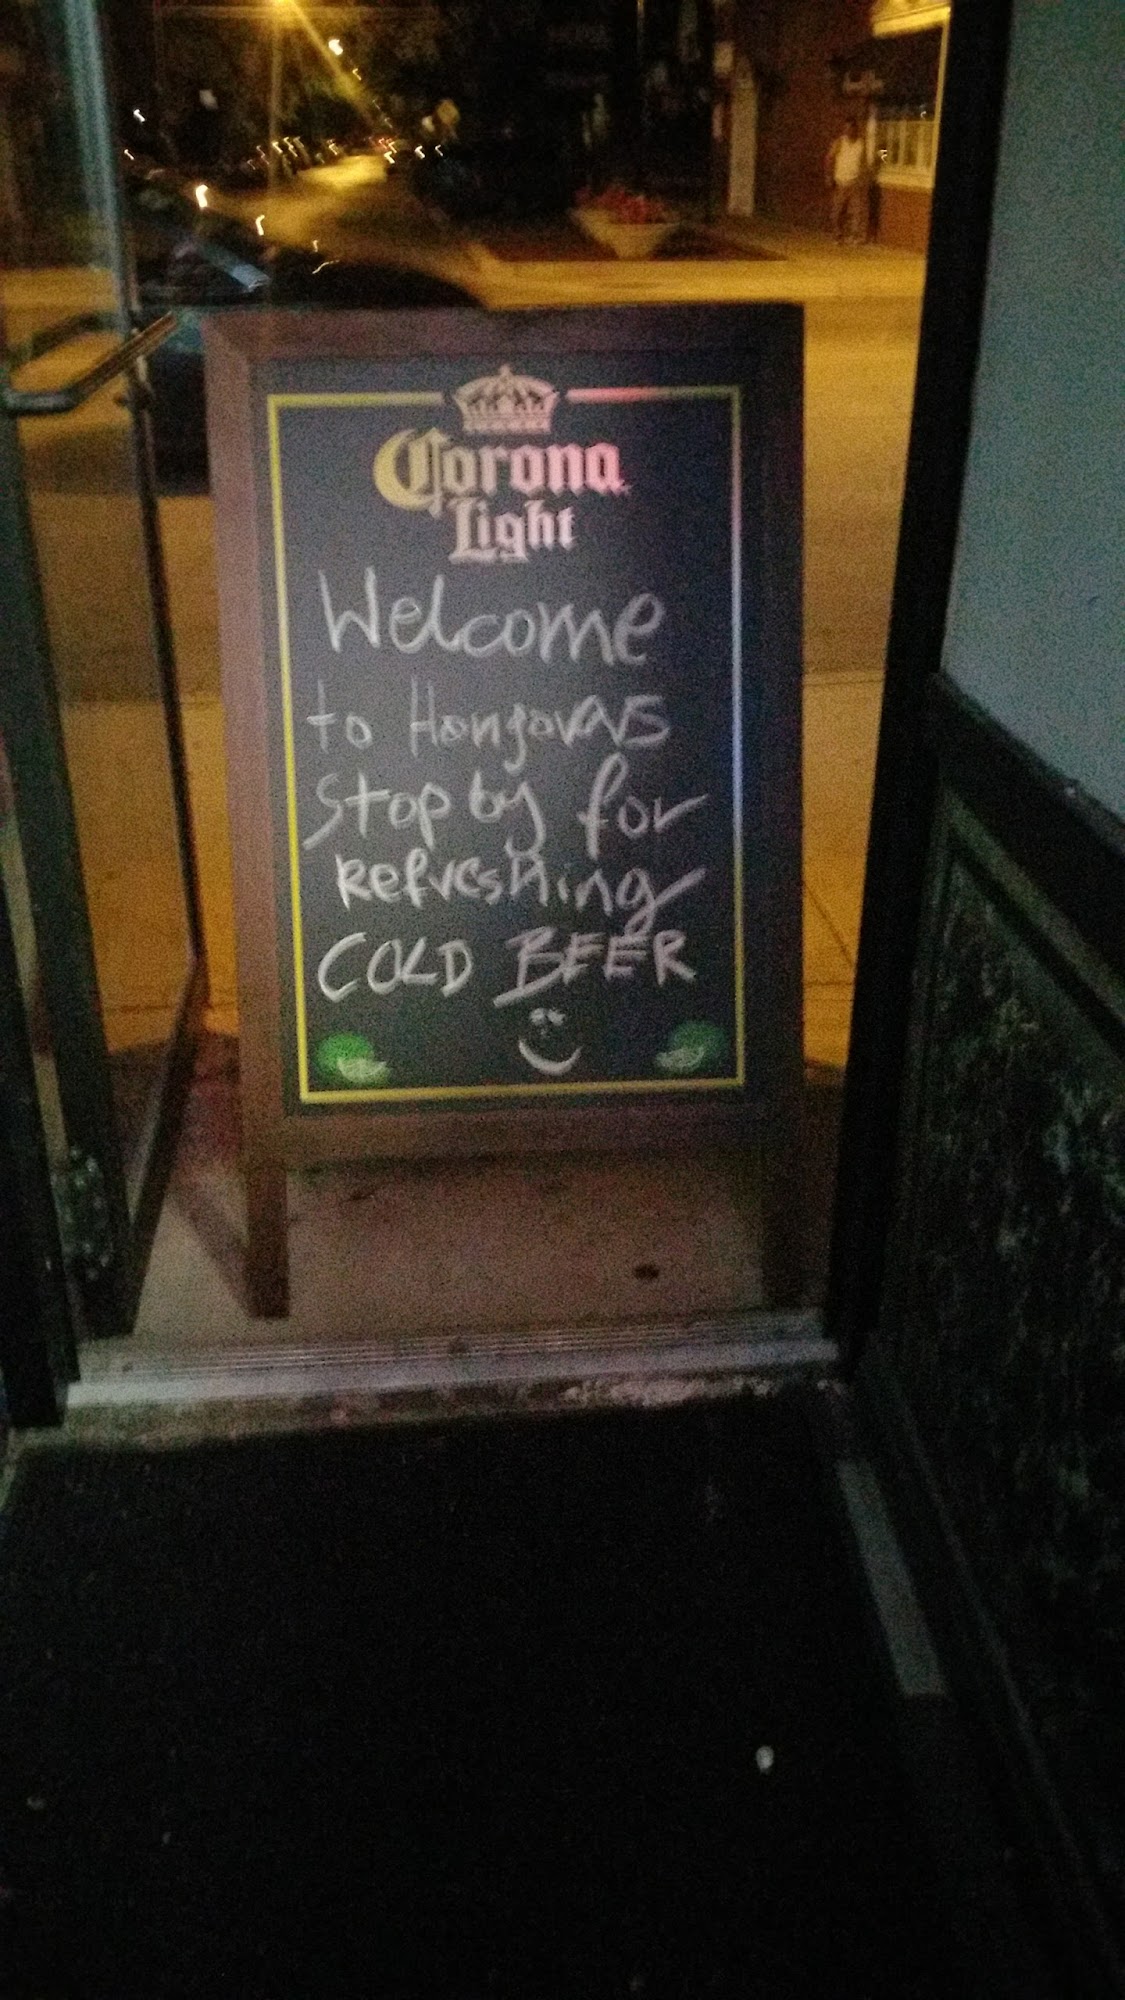 Corona
Light
Welcome
to
Stop by for
Refreshing
COLD BEER